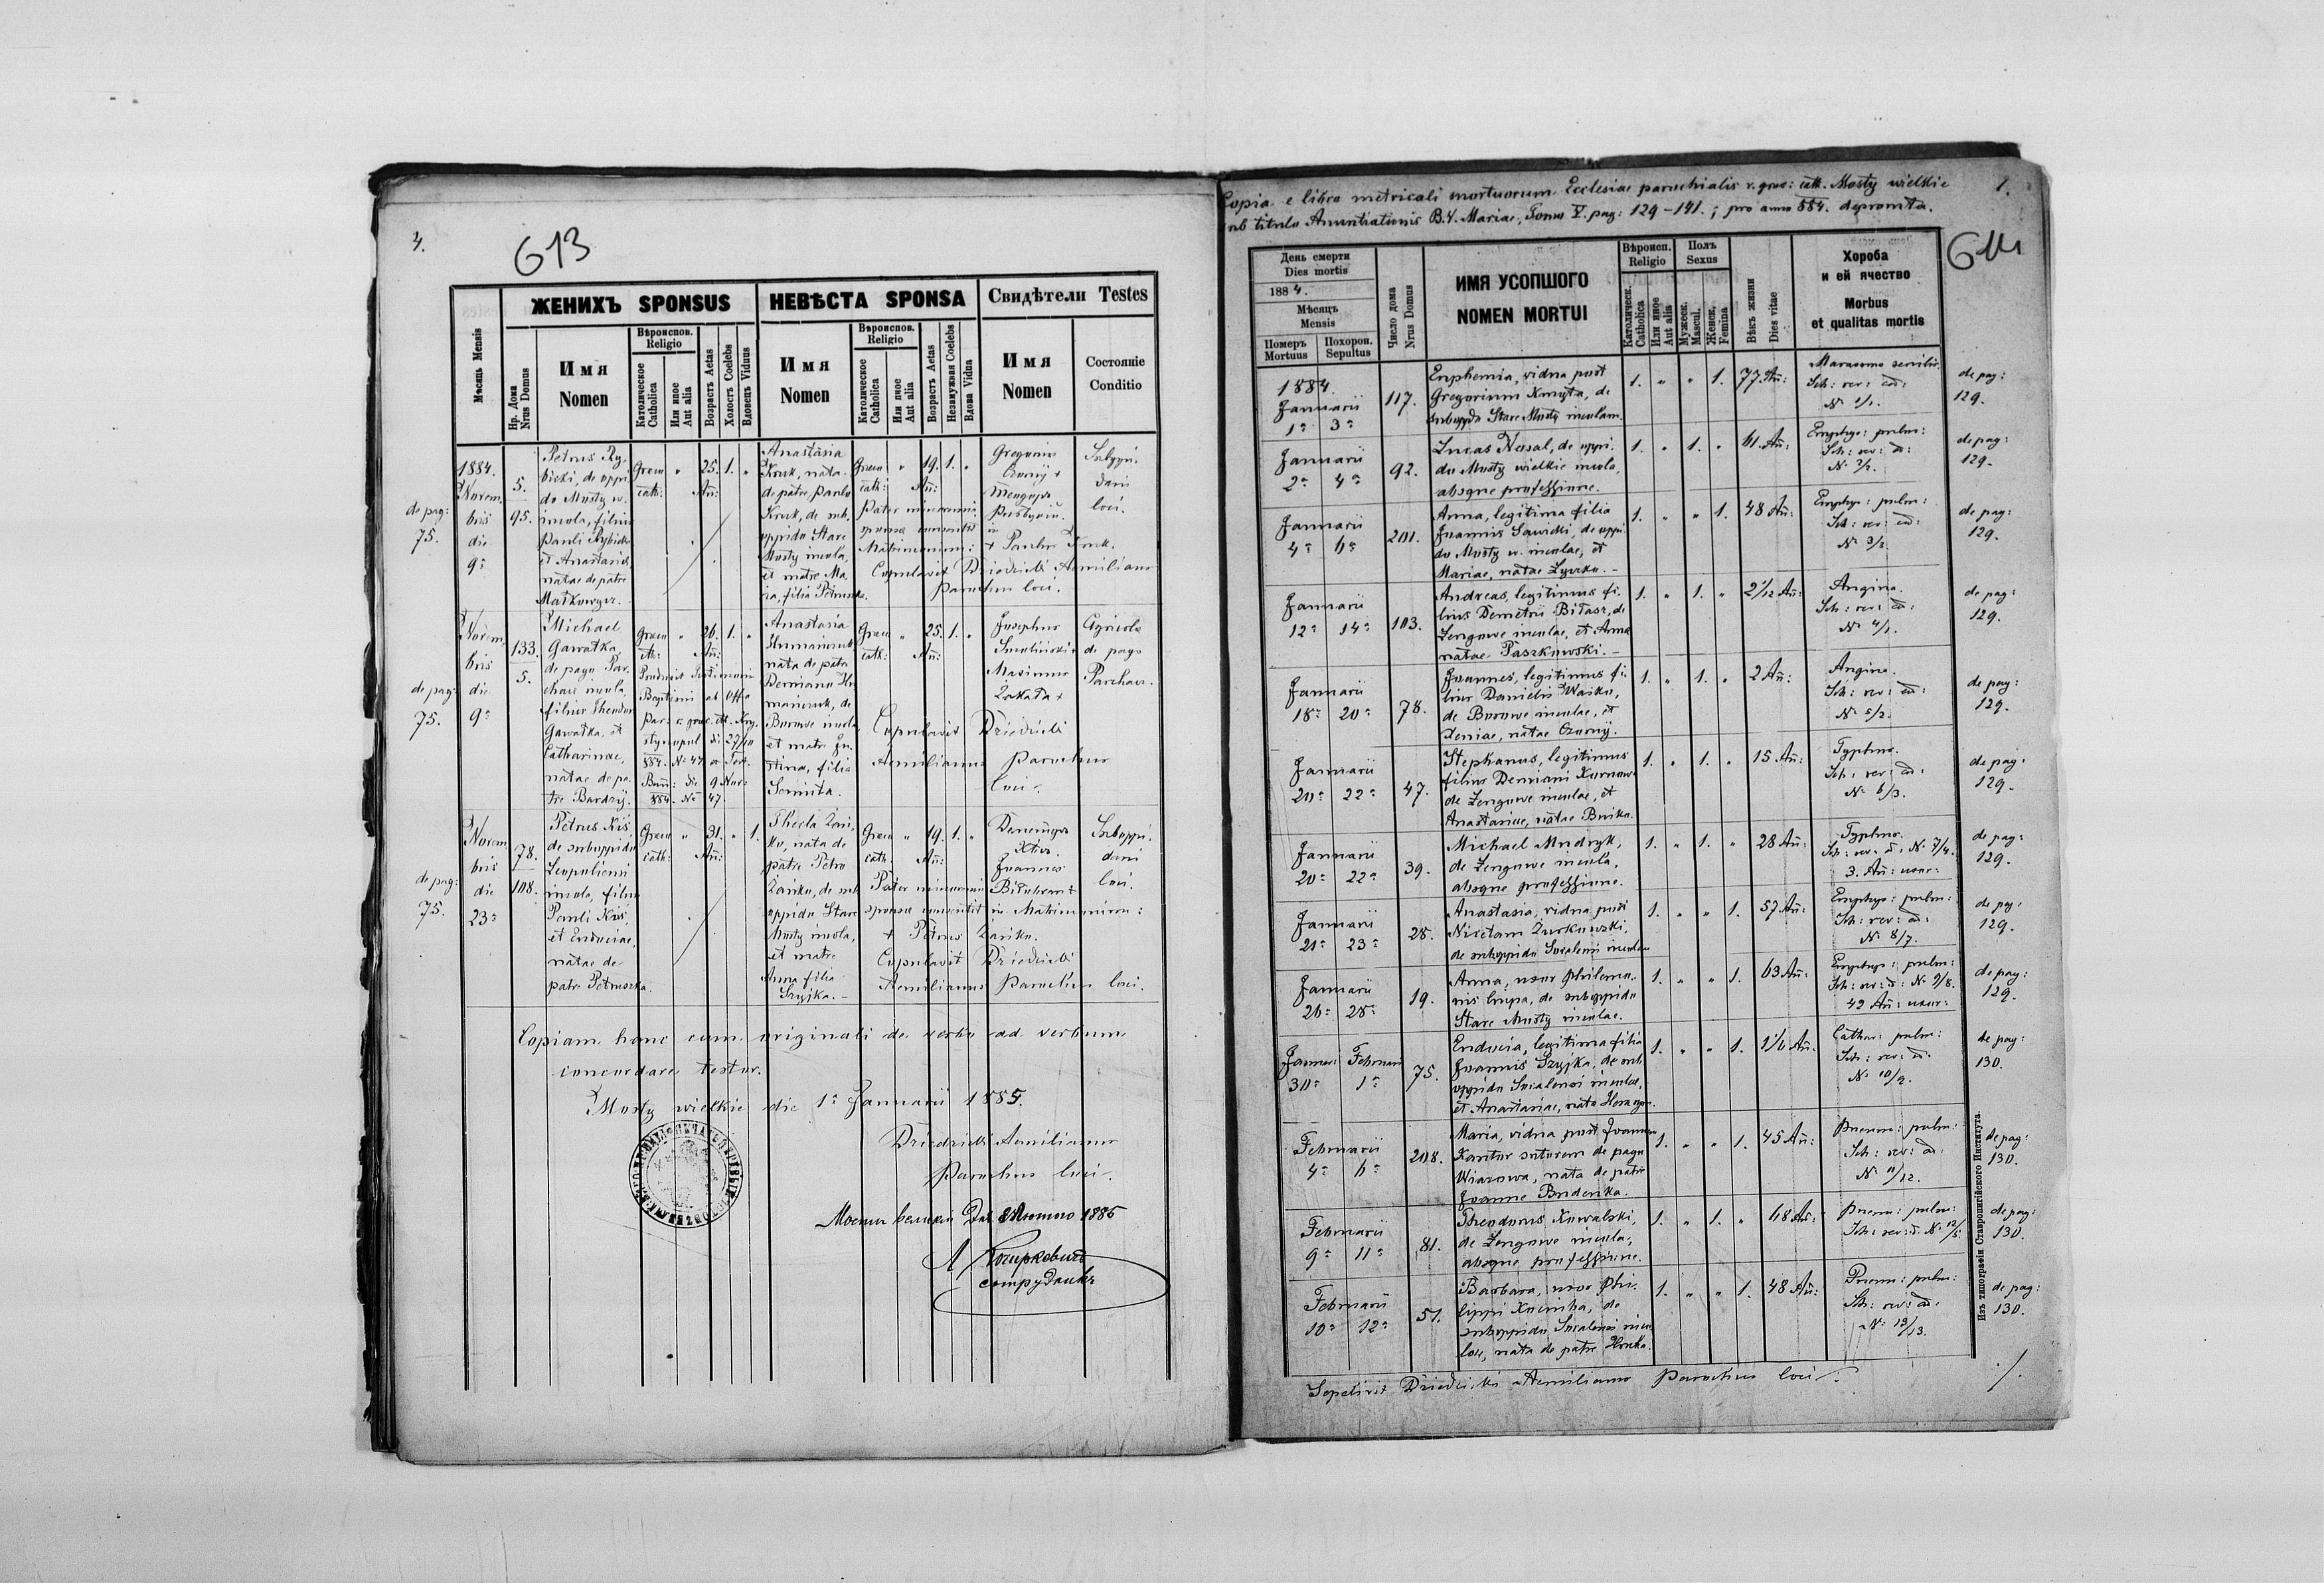 4.
613
ЖЕНИХЪ SPONSUS
НЕВѢСТА SPONSA
Свидѣтели Testes
Мѣсяць Mensis
Нр. Дома
Nrus Domus
Имя
Nomen
Вѣроиспов.
Religio
Католическое
Catholica
Или иное
Aut alia
Возрастъ Aetas
Холостъ Coelebs
Вдовецъ Viduus
Имя
Nomen
Вѣроиспов.
Religio
Католическое
Catholica
Или иное
Aut alia
Возрастъ Aetas
Незамужная Coelebs
Вдова Vidua
Имя
Nomen
Состояніе
Conditio
de pag:
75.
1884.
Novem
bris
die
9ª
5.
95.
Petrus Ry
bicki, de oppi
do Mosty w.
incola, filius
Pauli Rybicki
et Anastasiae
natae de patre
Graeco
cath:
"
25.
Añ:
1.
"
Anastasia
Kruk, nata
de patre Paulo
Kruk, de sub
oppido Stare
Mosty incola,
et matre Ma
ria, filia
Graeco
cath:
"
19.
Añ:
1.
"
Pater minorennis
sponsae consentit in
Matrimonium:
+ Paulus Kruk.
Gregorius
Presbyter.
Suboppi
dani
loci.
Copulavit Driedzicki Aemilianus
Parochus loci.
de pag:
75.
Novem
bris
die
9ª
133.
5.
Michael
Gawałka
de pago Par
chacz incola,
filius Theodori
Gawałka, et
Catharinae,
natae de pa
tre Bardzij.
Graeco
cath:
"
26.
Añ:
1.
"
Anastasia
nata de patre
Demiano
de
Borowe incola
et matre Ju
stina, filia
Graeco
cath:
"
25.
Añ:
1.
"
Josephus
Maximus
Agricola
de pago
Parchacz.
Copulavit Driedzicki
Aemilianus Parochus
loci.
de pag:
75.
Novem
bris
die
23ª
78.
108.
Petrus Kiś,
de suboppido
Leopoliensi
incola, filius
Pauli Kiś
et Eudociae,
natae de
patre Petruszka.
Graeco
cath:
"
31.
Añ:
"
1.
Thecla Zań
ko, nata de
patre Petro
Zańko, de sub
oppido Stare
Mosty incola,
et matre
Anna filia
Szyjka.
Graeco
cath:
"
19.
Añ:
1.
"
Pater minorennis
sponsae consentit in Matrimonium:
+ Petrus Zańko.
Joannes
Suboppi
dani
loci.
Copulavit Driedzicki
Aemilianus Parochus loci.
Copiam hanc cum originali de verbo ad verbum
concordare testor.
Mosty wielkie die 1ª Januarii 1885.
Driedzicki Aemilianus
Parochus loci.
Мосты великіи Дня 8 Лютого 1885
сотрудникъ
Copia e libro metricali mortuorum Ecclesiae parochialis r. graec: cath. Mosty wielkie
sub titulo Annuntiationis B.V. Mariae, Tomo V. pag: 129-141.; pro anno 884. deprompta.
1.
614
День смерти
Dies mortis
1884.
Мѣсяцъ
Mensis
Померъ
Mortuus
Похорон.
Sepultus
Число дома
Nrus Domus
ИМЯ УСОПШОГО
NOMEN MORTUI
Вѣроисп.
Religio
Католическ.
Catholica
Или иное
Aut alia
Полъ
Sexus
Мужеск.
Mascul.
Женск.
Femina
Вѣкъ жизни
Dies vitae
Хороба
и ей ячество
Morbus
et qualitas mortis
1884.
Januarii
1ª 3ª
117.
Euphemia, vidua post
Gregorium Kmyta, de
suboppido Stare Mosty incolam.
1. " " 1.
77 Añ:
Marasmo senilis.
Sch: rev: ed:
Nº 1/1.
de pag:
129.
Januarii
2ª 4ª
92.
Lucas Nosal, de oppi
do Mosty wielkie incola,
absque professione.
1. " 1. "
61 Añ:
Emphys: pulm:
Sch: rev: ed:
Nº 2/2.
de pag:
129.
Januarii
4ª 6ª
201.
Anna, legitima filia
Joannis Sawicki, de oppi
do Mosty w. incolae, et
Mariae, natae Zyrko.
1. " " 1.
48 Añ:
Emphys: pulm:
Sch: rev: ed:
Nº 3/3.
de pag:
129.
Januarii
12ª 14ª
103.
Andreas, legitimus fi
lius Demetrii Biłasz, de
Zengowe incolae, et Anna
natae Paszkowski.
1. " 1. "
2 1/12 Añ:
Angina.
Sch: rev: ed:
Nº 4/1.
de pag:
129.
Januarii
18ª 20ª
78.
Joannes, legitimus fi
lius Danielis Waśko,
de Borowe incolae, et
Xeniae, natae Czornij.
1. " 1. "
2 Añ:
Angina.
Sch: rev: ed:
Nº 5/2.
de pag:
129.
Januarii
20ª 22ª
47.
Stephanus, legitimus
filius Demiani
de Zengowe incolae, et
Anastasiae, natae Buśko.
1. " 1. "
15 Añ:
Typhus.
Sch: rev: ed:
Nº 6/3.
de pag:
129.
Januarii
20ª 22ª
39.
Michael Mudryk,
de Zengowe incola,
absque professione.
1. " 1. "
28 Añ:
Typhus.
Sch: rev: ed: Nº 7/4.
3. Añ: uxor:
de pag:
129.
Januarii
21ª 23ª
28.
Anastasia, vidua post
Nicetam Zurkowski,
de suboppido Socalensi incolam
1. " " 1.
57 Añ:
Emphys: pulm:
Sch: rev: ed:
Nº 8/7.
de pag:
129.
Januarii
26ª 28ª
19.
Anna, uxor Philemo
nis Czupa, de suboppido
Stare Mosty incolae.
1. " " 1.
63 Añ:
Emphys: pulm:
Sch: rev: ed: Nº 9/8.
42 Añ: uxor:
de pag:
129.
Januarii Februarii
30ª 1ª
75.
Eudocia, legitima filia
Joannis Szyjka, de sub
oppido Socalensi incolae,
et Anastasiae, nata
1. " " 1.
1 1/6 Añ:
Cathar: pulm:
Sch: rev: ed:
Nº 10/9.
de pag:
130.
Februarii
4ª 6ª
208.
Maria, vidua post Joannem
Kantor sutorem de pago
Wiazowa, nata de patre
Joanne Budenka.
1. " " 1.
45 Añ:
Pneum: pulm:
Sch: rev: ed:
Nº 11/12.
de pag:
130.
Februarii
9ª 11ª
81.
Theodorus Kowalski,
de Zengowe incola,
absque professione.
1. " 1. "
68 Añ:
Pneum: pulm:
Sch: rev: ed: Nº 12/5.
de pag:
130.
Februarii
10ª 12ª
51.
Barbara, uxor Phi
lippi Kuzmicha, de
suboppido Socalensi inco
lae, nata de patre Hruka.
1. " " 1.
48 Añ:
Pneum: pulm:
Sch: rev: ed:
Nº 13/13.
de pag:
130.
Sepelivit Driedzicki Aemilianus Parochus loci
Изъ типографіи Ставропигійского Института.